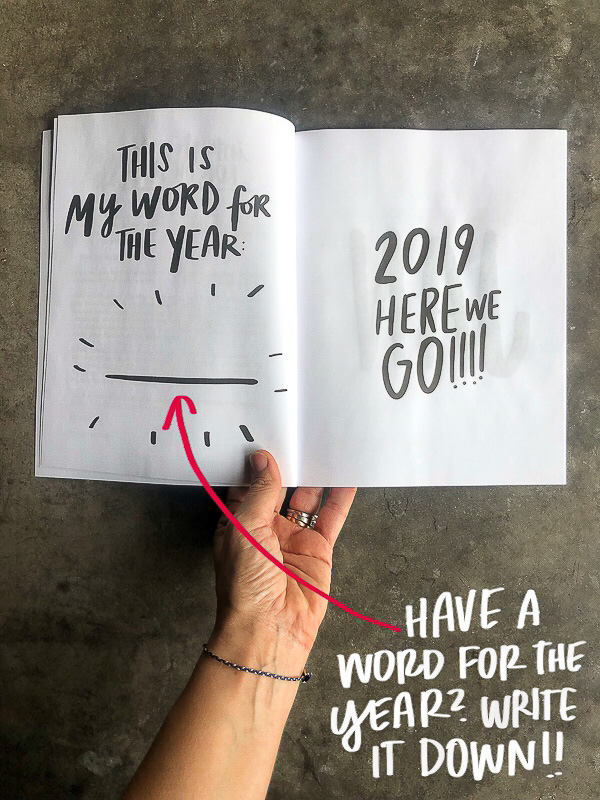 THIS IS
MY WORD for
THE YEAR:
2019
HERE WE
GO!!!!
HAVE A
WORD FOR THE
YEAR? WRITE
IT DOWN!!